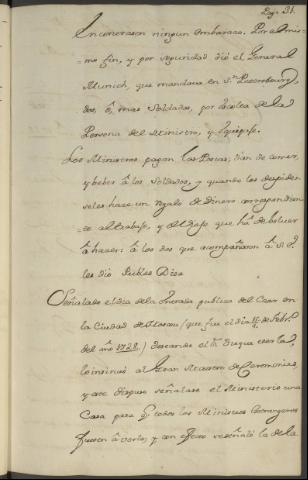 Pag. 31.
Encontrasen ningun embarazo. Por el mis-
mo fin, y por seguridad dió el General
Munich, que mandava en Sn. Petersbourg,
dos, ó, mas Soldados, por escolta de la
Persona del Ministro, y Equipaje.
Los Ministros pagan las Postas, dan de comer,
y beber á los Soldados, y quando los despiden
seles hace un regalo de dinero correspondien-
te al trabajo, y al que há de bolver
á hacer: á los dos que acompañaron á
les dio Doze
Señalado el dia de la Entrada publica del Czar en
la Ciudad de Moscou (que fue el dia de Febro.
del año 1728.) Deseando el Duque verla,
lo insinuó al Gran Maestro de Ceremonias,
y este dispuso señalase el Ministerio una
Casa para q todos los Ministros Estrangeros
fuesen á verla, y con efecto señaló la de la